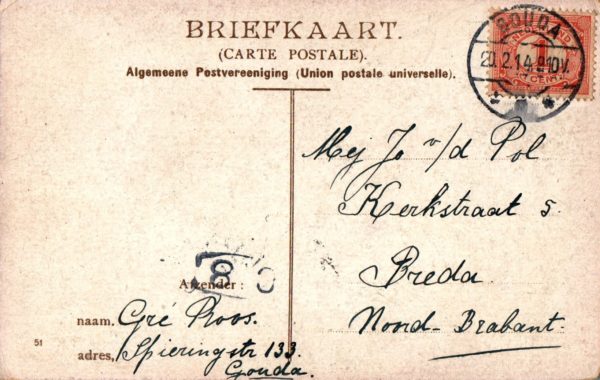 BRIEFKAART.
(CARTE POSTALE).
Algemeene Postvereeniging (Union postale universelle).
GOUDA
20.2.14
10V.
Mej Jo v/d Pol
Kerkstraat 5.
Breda
Noord-Brabant.
8
Afzender:
naam. Gré Roos.
adres, Spieringstr 133.
Gouda.
51